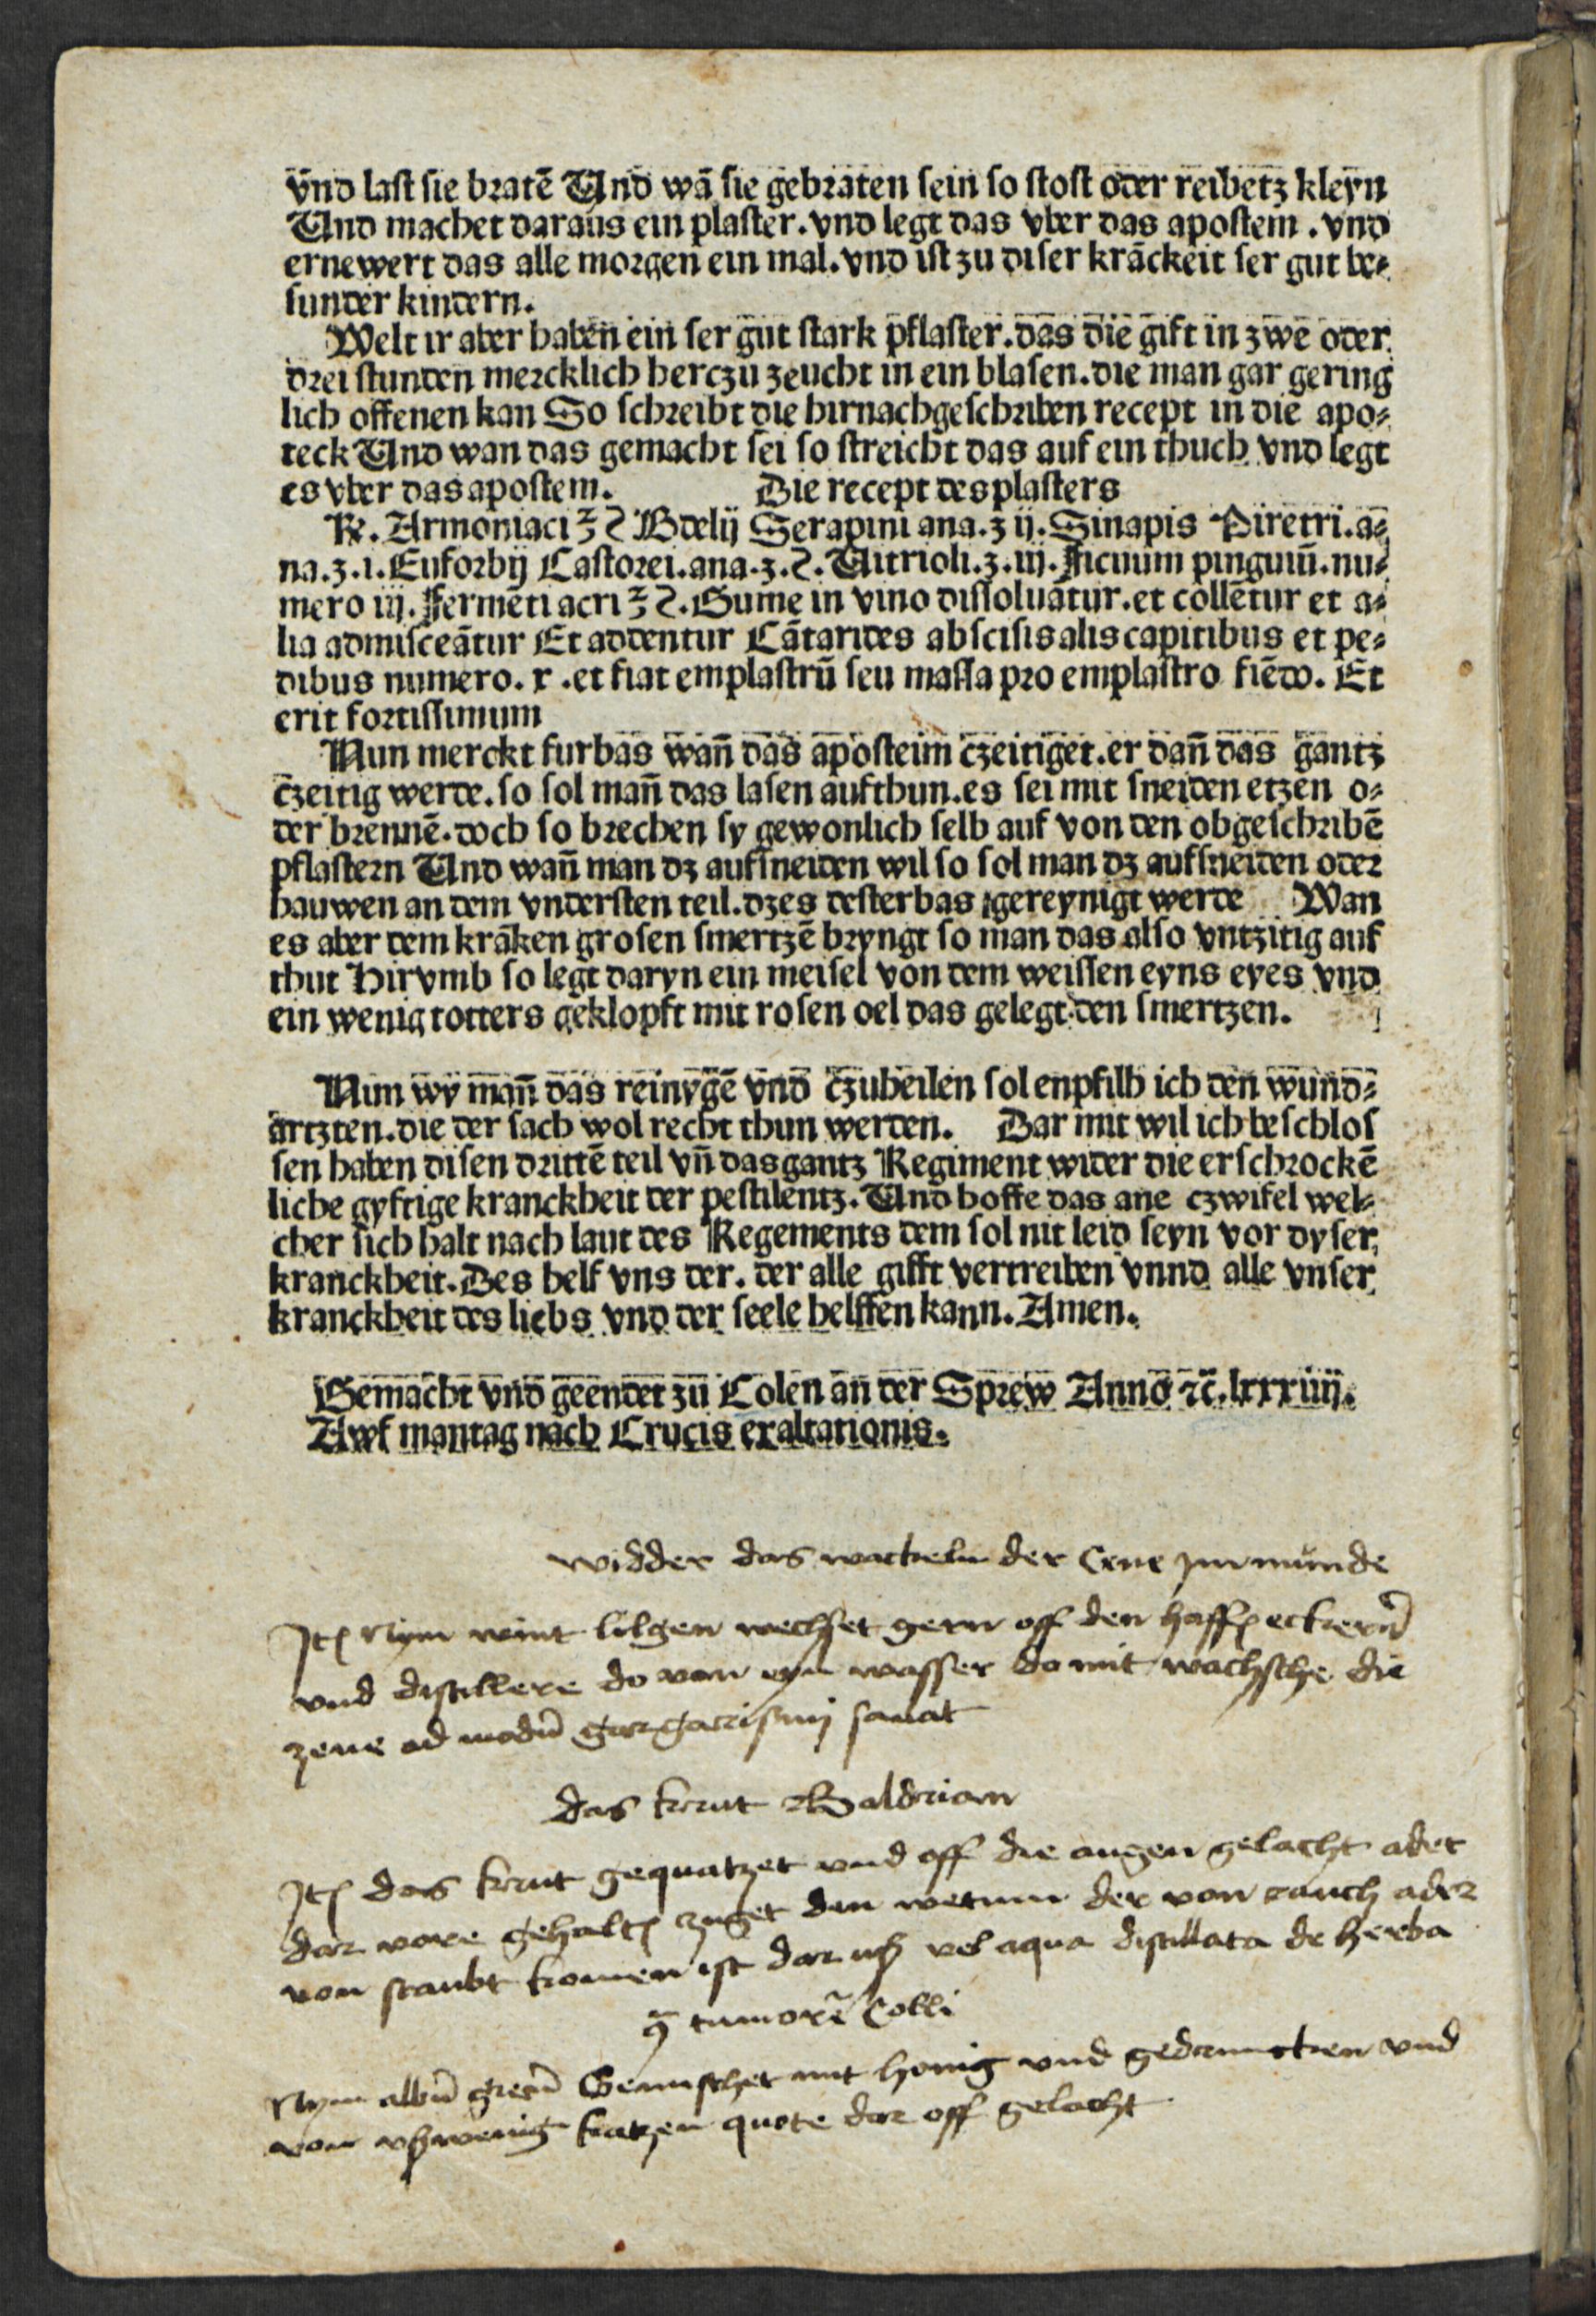 vnd last sie bratē Und wā sie gebraten sein so stost oder reibetz kleyn
Und machet daraus ein plaster. vnd legt das vber das apostem. vnd
ernewert das alle morgen ein mal. vnd ist zu diser krāckeit ser gut be⸗
sunder kindern.
Welt ir aber haben ein ser gut stark pflaster. das die gift in zwe oder
drei stunden mercklich herczu zeucht in ein blasen. die man gar gering
lich offenen kan So schreibt die hirnachgeschriben recept in die apo⸗
teck Und wan das gemacht sei so streicht das auf ein thuch vnd legt
es vber das apostem. Die recept des plasters
℞. Armoniaci ℥ ẜ Bdelij Serapini ana. ʒ ij. Sinapis Piretri. a⸗
na. ʒ. i. Euforbij Castorei. ana. ʒ. ẜ. Uitrioli. ʒ. iij. Ficuum pinguiū. nu⸗
mero iij. Fermēti acri ℥ ẜ. Gume in vino dissoluātur. et collētur et a⸗
lia admisceātur Et addentur Cātarides abscisis alis capitibus et pe⸗
dibus numero. x. et fiat emplastrū seu massa pro emplastro fiēdo. Et
erit fortissimum
Nun merckt furbas wañ das aposteim czeitiget. er dañ das gantz
czeitig werde. so sol mañ das lasen aufthun. es sei mit sneiden etzen o⸗
der brennē. doch so brechen sy gewonlich selb auf von den obgeschribē
pflastern Und wañ man dz aufsneiden wil so sol man dz aufsneiden oder
hauwen an dem vndersten teil. dz es dester bas gereynigt werde Wan
es aber dem krāken grosen smertzē bryngt so man das also vntzitig auf
thut Hirvmb so legt daryn ein meisel von dem weissen eyns eyes vnd
ein wenig totters geklopft mit rosen oel das gelegt den smertzen.
Nun wy mañ das reinygē vnd czuheilen sol enpfilh ich den wund⸗
artzten. die der sach wol recht thun werden. Dar mit wil ich beschlos
sen haben disen drittē teil vñ das gantz Regiment wider die erschrockē
liche gyftige kranckheit der pestilentz. Und hoffe das ane czwifel wel⸗
cher sich halt nach laut des Regements dem sol nit leid seyn vor dyser
kranckheit. Des helf vns der. der alle gifft vertreiben vnnd alle vnser
kranckheit des liebs vnd der seele helffen kann. Amen.
Gemacht vnd geendet zu Colen an der Sprew Anno ⁊c̄. lxxxiiij.
Awf mantag nach Crucis exaltationis.
widder das wackeln der Cene jm munde
Nym wint lilgen wechset gern off den
vnd distillere do von eyn wasser do mit wachsche die
zene ad modū gargarismj sanat
das krut Baldrian
das krut gequatzet vnd off die augen gelacht ader
dar vore zuget den wetum der von rauch ader
von staubt komen ist vel aqua distillata de herba
tumorē Colli
Nym albū grecū Gemischet mit honig vnd gedruncken vnd
von wenig katzen quote dar off gelacht